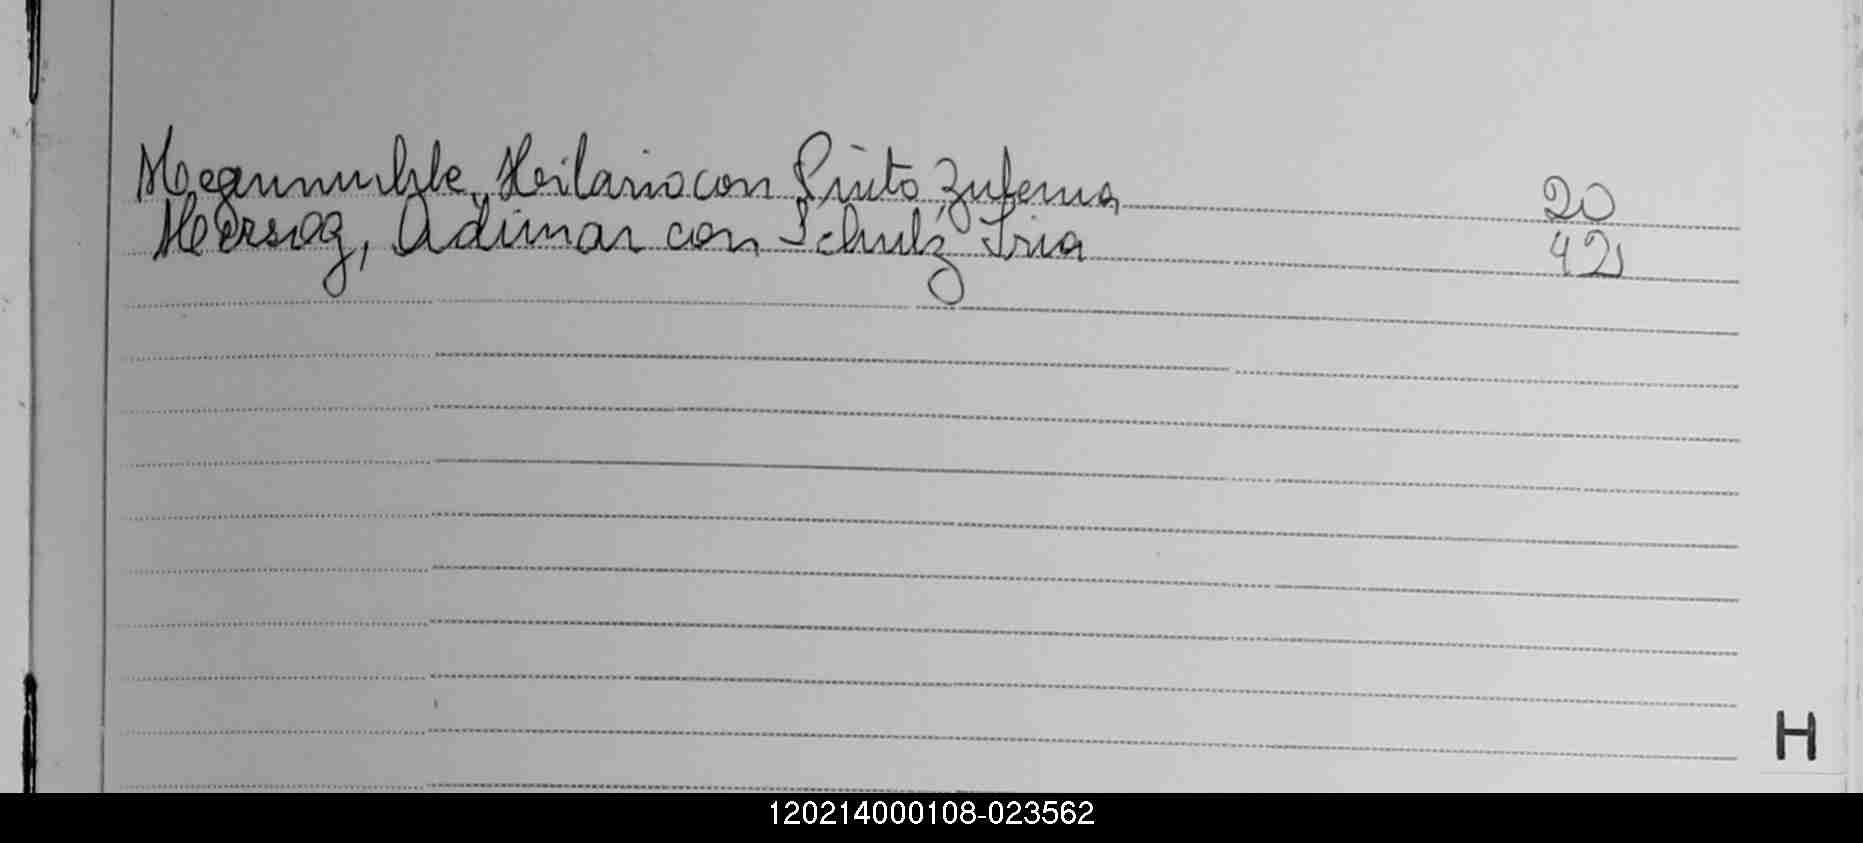 Hegunmuhle, Heilario con Pinto, Zulema 20
Hersog, Adimar con Schulz Iria 42
H
120214000108-023562